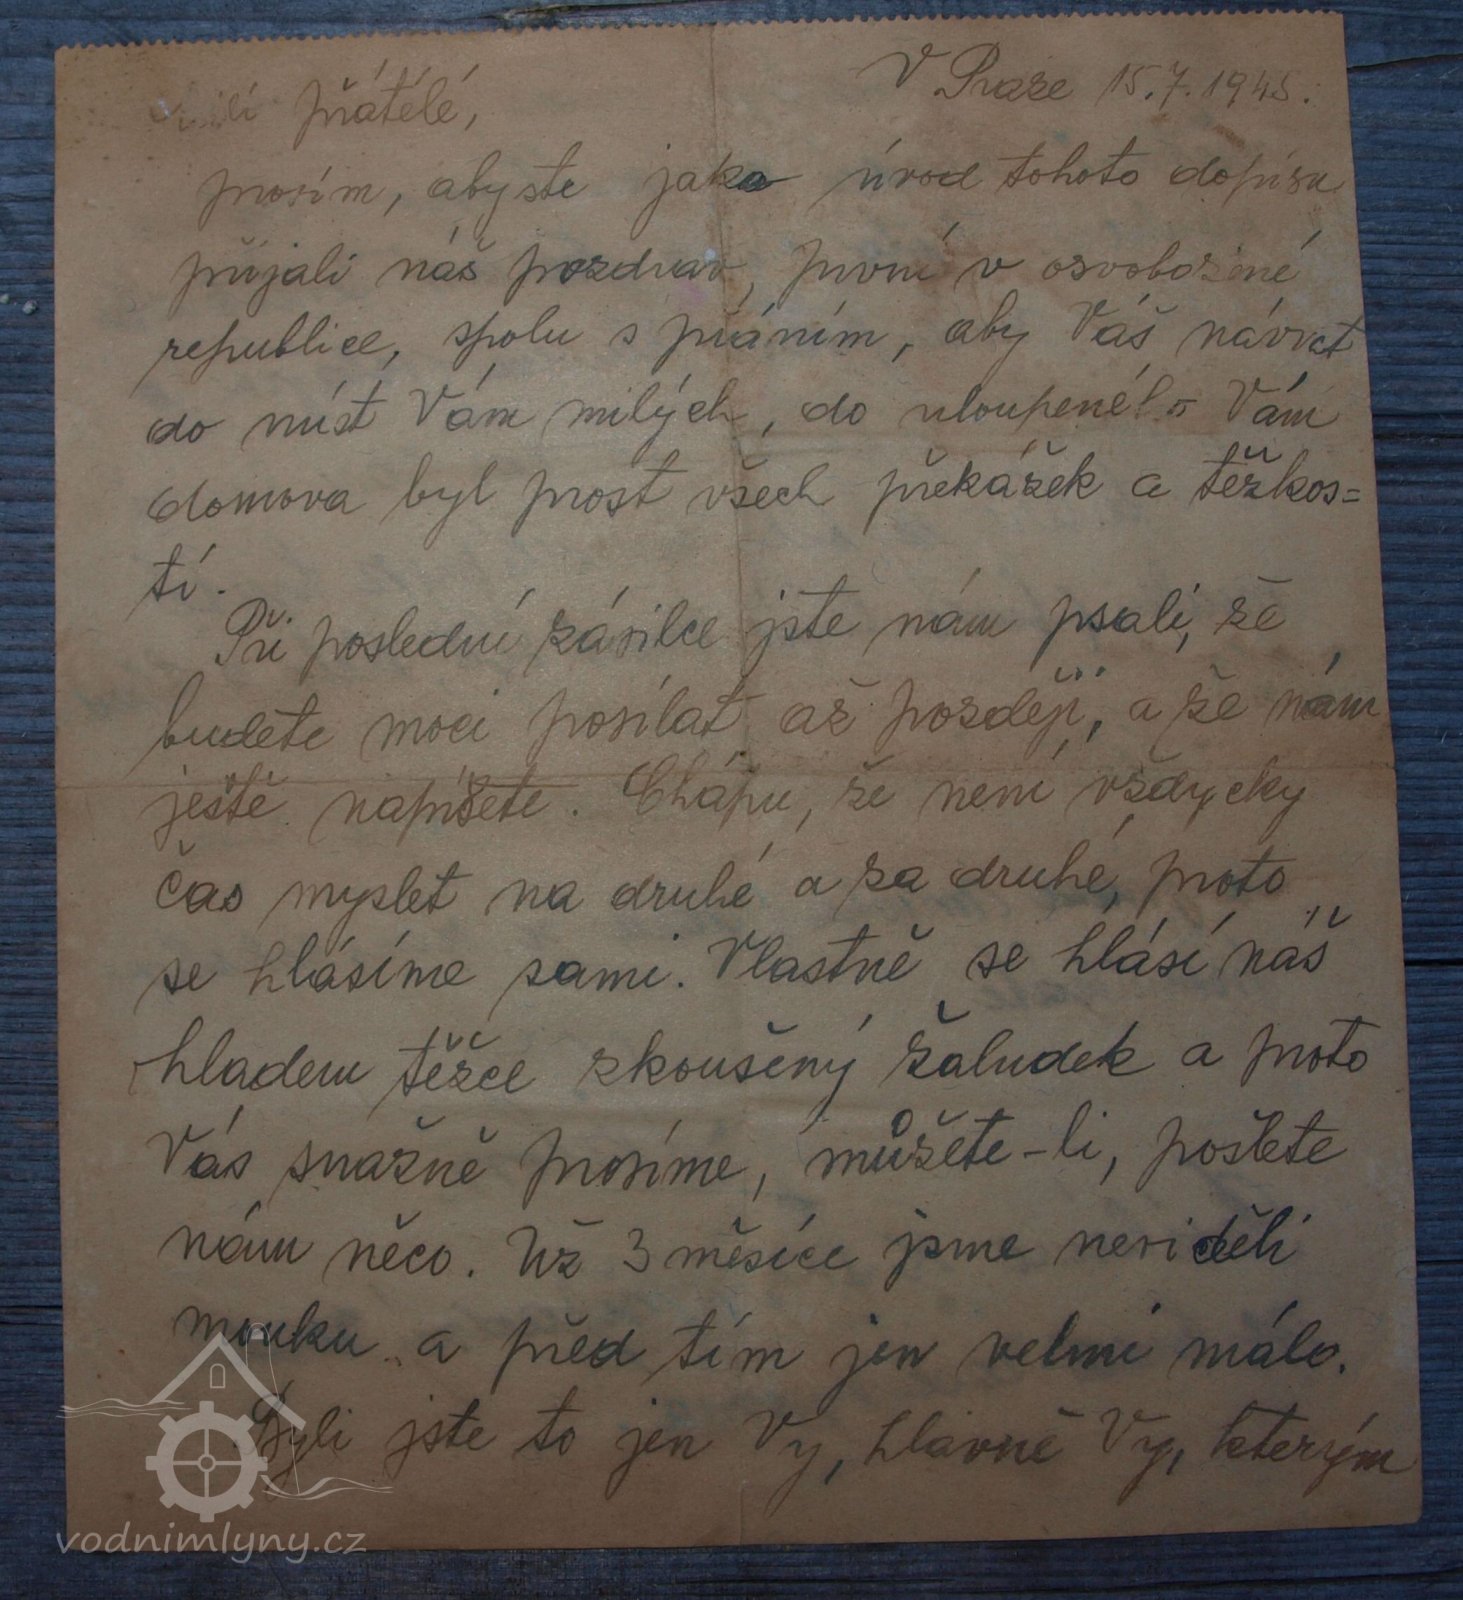 V Praze 15.7.1945.
Milí přátélé,
prosím, abyste jako úvod tohoto dopisu
přijali náš pozdrav, první v osvobozené
republice, spolu s přáním, aby Váš návrat
do míst Vám milých, do uloupeného Vám
domova byl prost všech překážek a těžkos=
tí.
Při poslední zásilce jste nám psali, že
budete moci posílat až později, a že nám
ještě napíšete. Chápu, že není vždycky
čas myslet na druhé a za druhé, proto
se hlásíme sami. Vlastně se hlásí náš
hladem těžce zkoušený žaludek a proto
Vás snažně prosíme, můžete-li, pošlete
nám něco. Už 3 měsíce jsme neviděli
mouku a před tím jen velmi málo.
Byli jste to jen Vy, hlavně Vy, kterým
vodnimlyny.cz